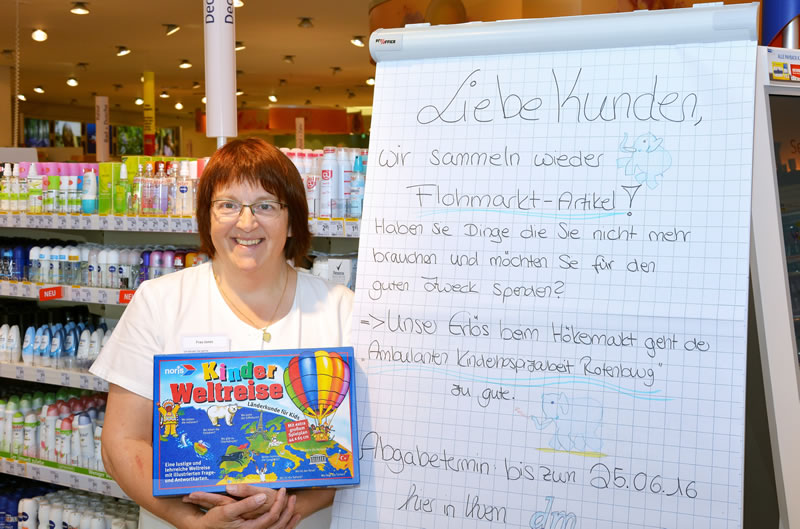 Liebe Kunden,
wir sammeln wieder
Flohmarkt-Artikel!
Haben Sie Dinge die Sie nicht mehr
brauchen und möchten Sie für den
guten Zweck spenden?
=> Unser Erlös beim Hökermarkt geht der
"Ambulanten Kinderhospizarbeit Rotenburg"
zu gute.
Abgabetermin: bis zum 25.06.16
hier in Ihrem dm
noris
Kinder
Weltreise
Länderkunde für Kids
Mit extra
großem
Spielplan
Eine lustige und
lehrreiche Weltreise
mit illustrierten Frage-
und Antwortkarten.
NEU
NEU